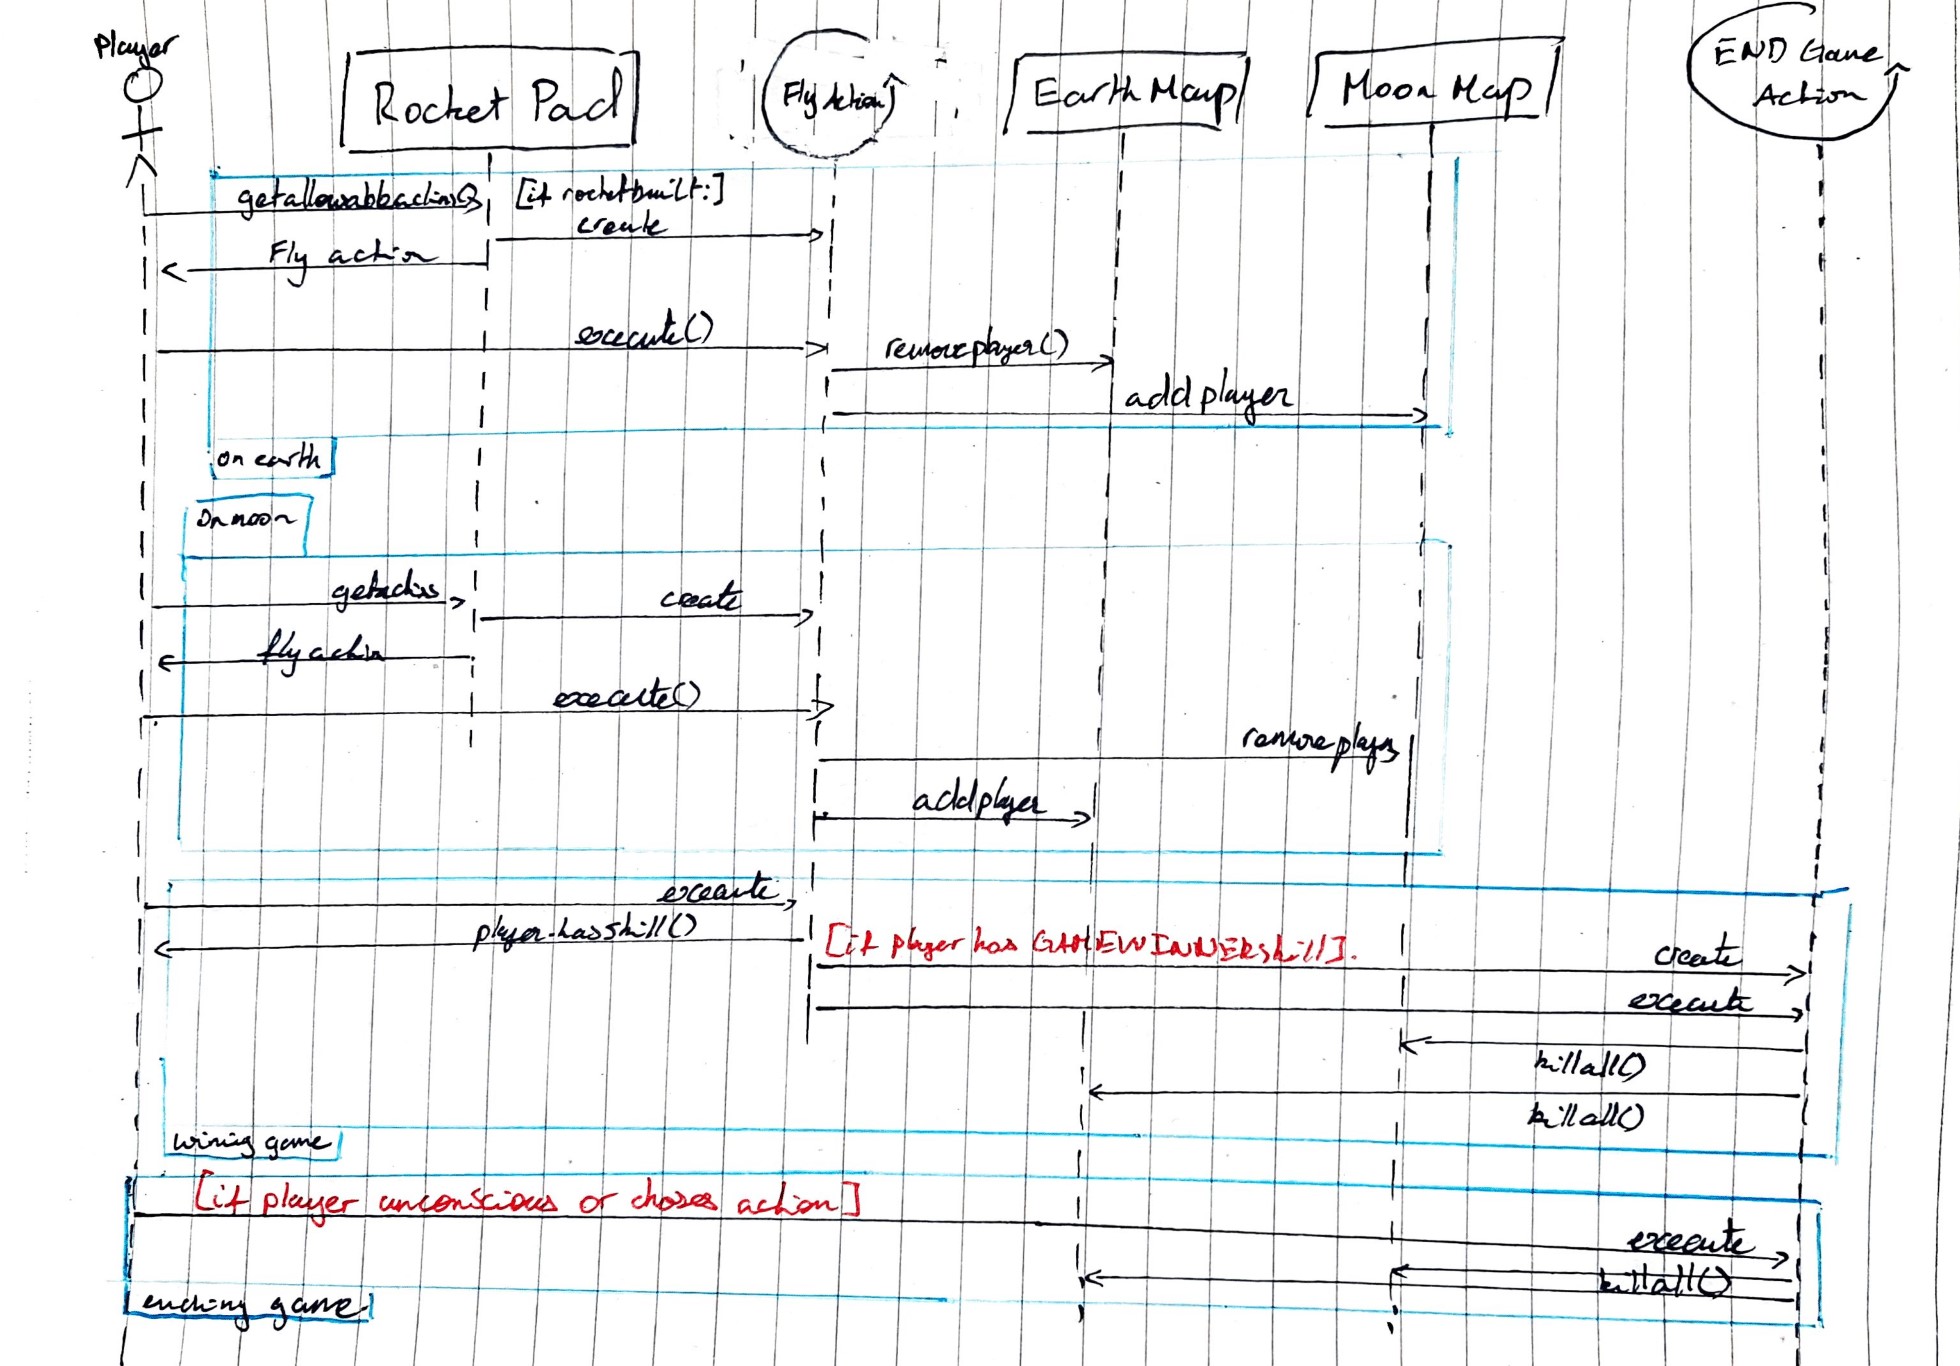 Player
Rocket Pad
Fly Action
Earth Map
Moon Map
END Game
Action
getallowableactions()
[if rocketbuilt:]
create
Fly action
execute()
removeplayer()
add player
on earth
On moon
getactions
create
fly action
execute()
remove player
add player
execute
player.hasskill()
[if player has GAMEWINNERskill].
create
execute
killall()
killall()
wining game
[if player unconscious or choses action]
execute
killall()
ending game